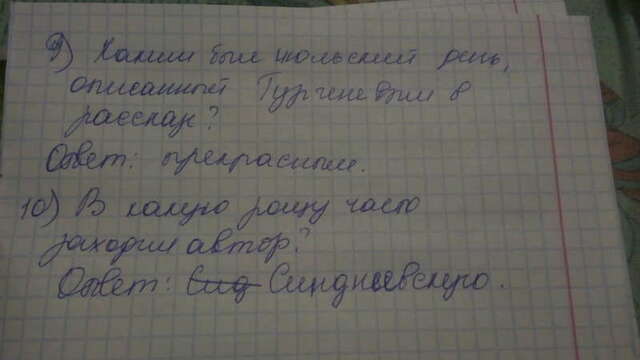 9) Каким был июльский день,
описанный Тургеневым в
рассказе?
Ответ: прекрасным.
10) В какую рощу часто
заходил автор?
Ответ: Синдеевскую.